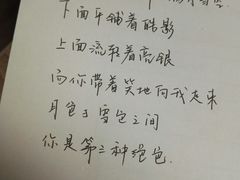 下面平铺着皓影
上面流转着亮银
而你带着笑地向我走来
月色与雪色之间
你是第三种绝色.